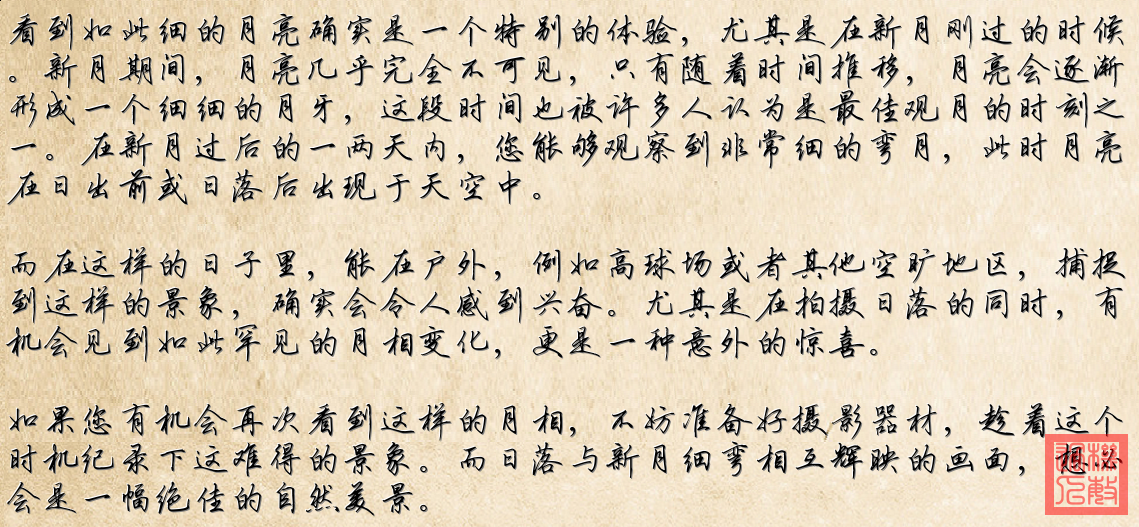 看到如此细的月亮确实是一个特别的体验，尤其是在新月刚过的时候
。新月期间，月亮几乎完全不可见，只有随着时间推移，月亮会逐渐
形成一个细细的月牙，这段时间也被许多人认为是最佳观月的时刻之
一。在新月过后的一两天内，您能够观察到非常细的弯月，此时月亮
在日出前或日落后出现于天空中。
而在这样的日子里，能在户外，例如高球场或者其他空旷地区，捕捉
到这样的景象，确实会令人感到兴奋。尤其是在拍摄日落的同时，有
机会见到如此罕见的月相变化，更是一种意外的惊喜。
如果您有机会再次看到这样的月相，不妨准备好摄影器材，趁着这个
时机纪录下这难得的景象。而日落与新月细弯相互辉映的画面，想必
会是一幅绝佳的自然美景。